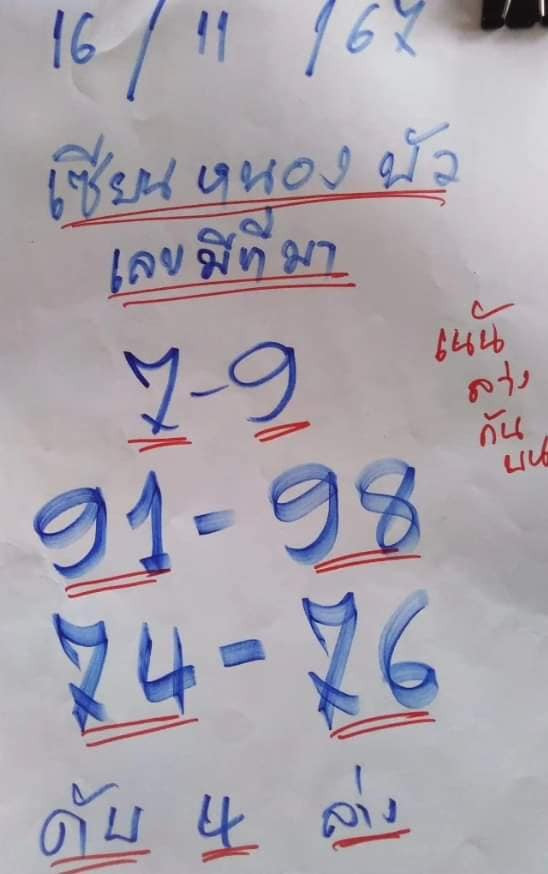 16/11/67
เซียนหนองบัว
เลขมีที่มา
7-9
เน้น
ล่าง
กัน
บน
91-98
74-76
ดับ 4 ล่าง